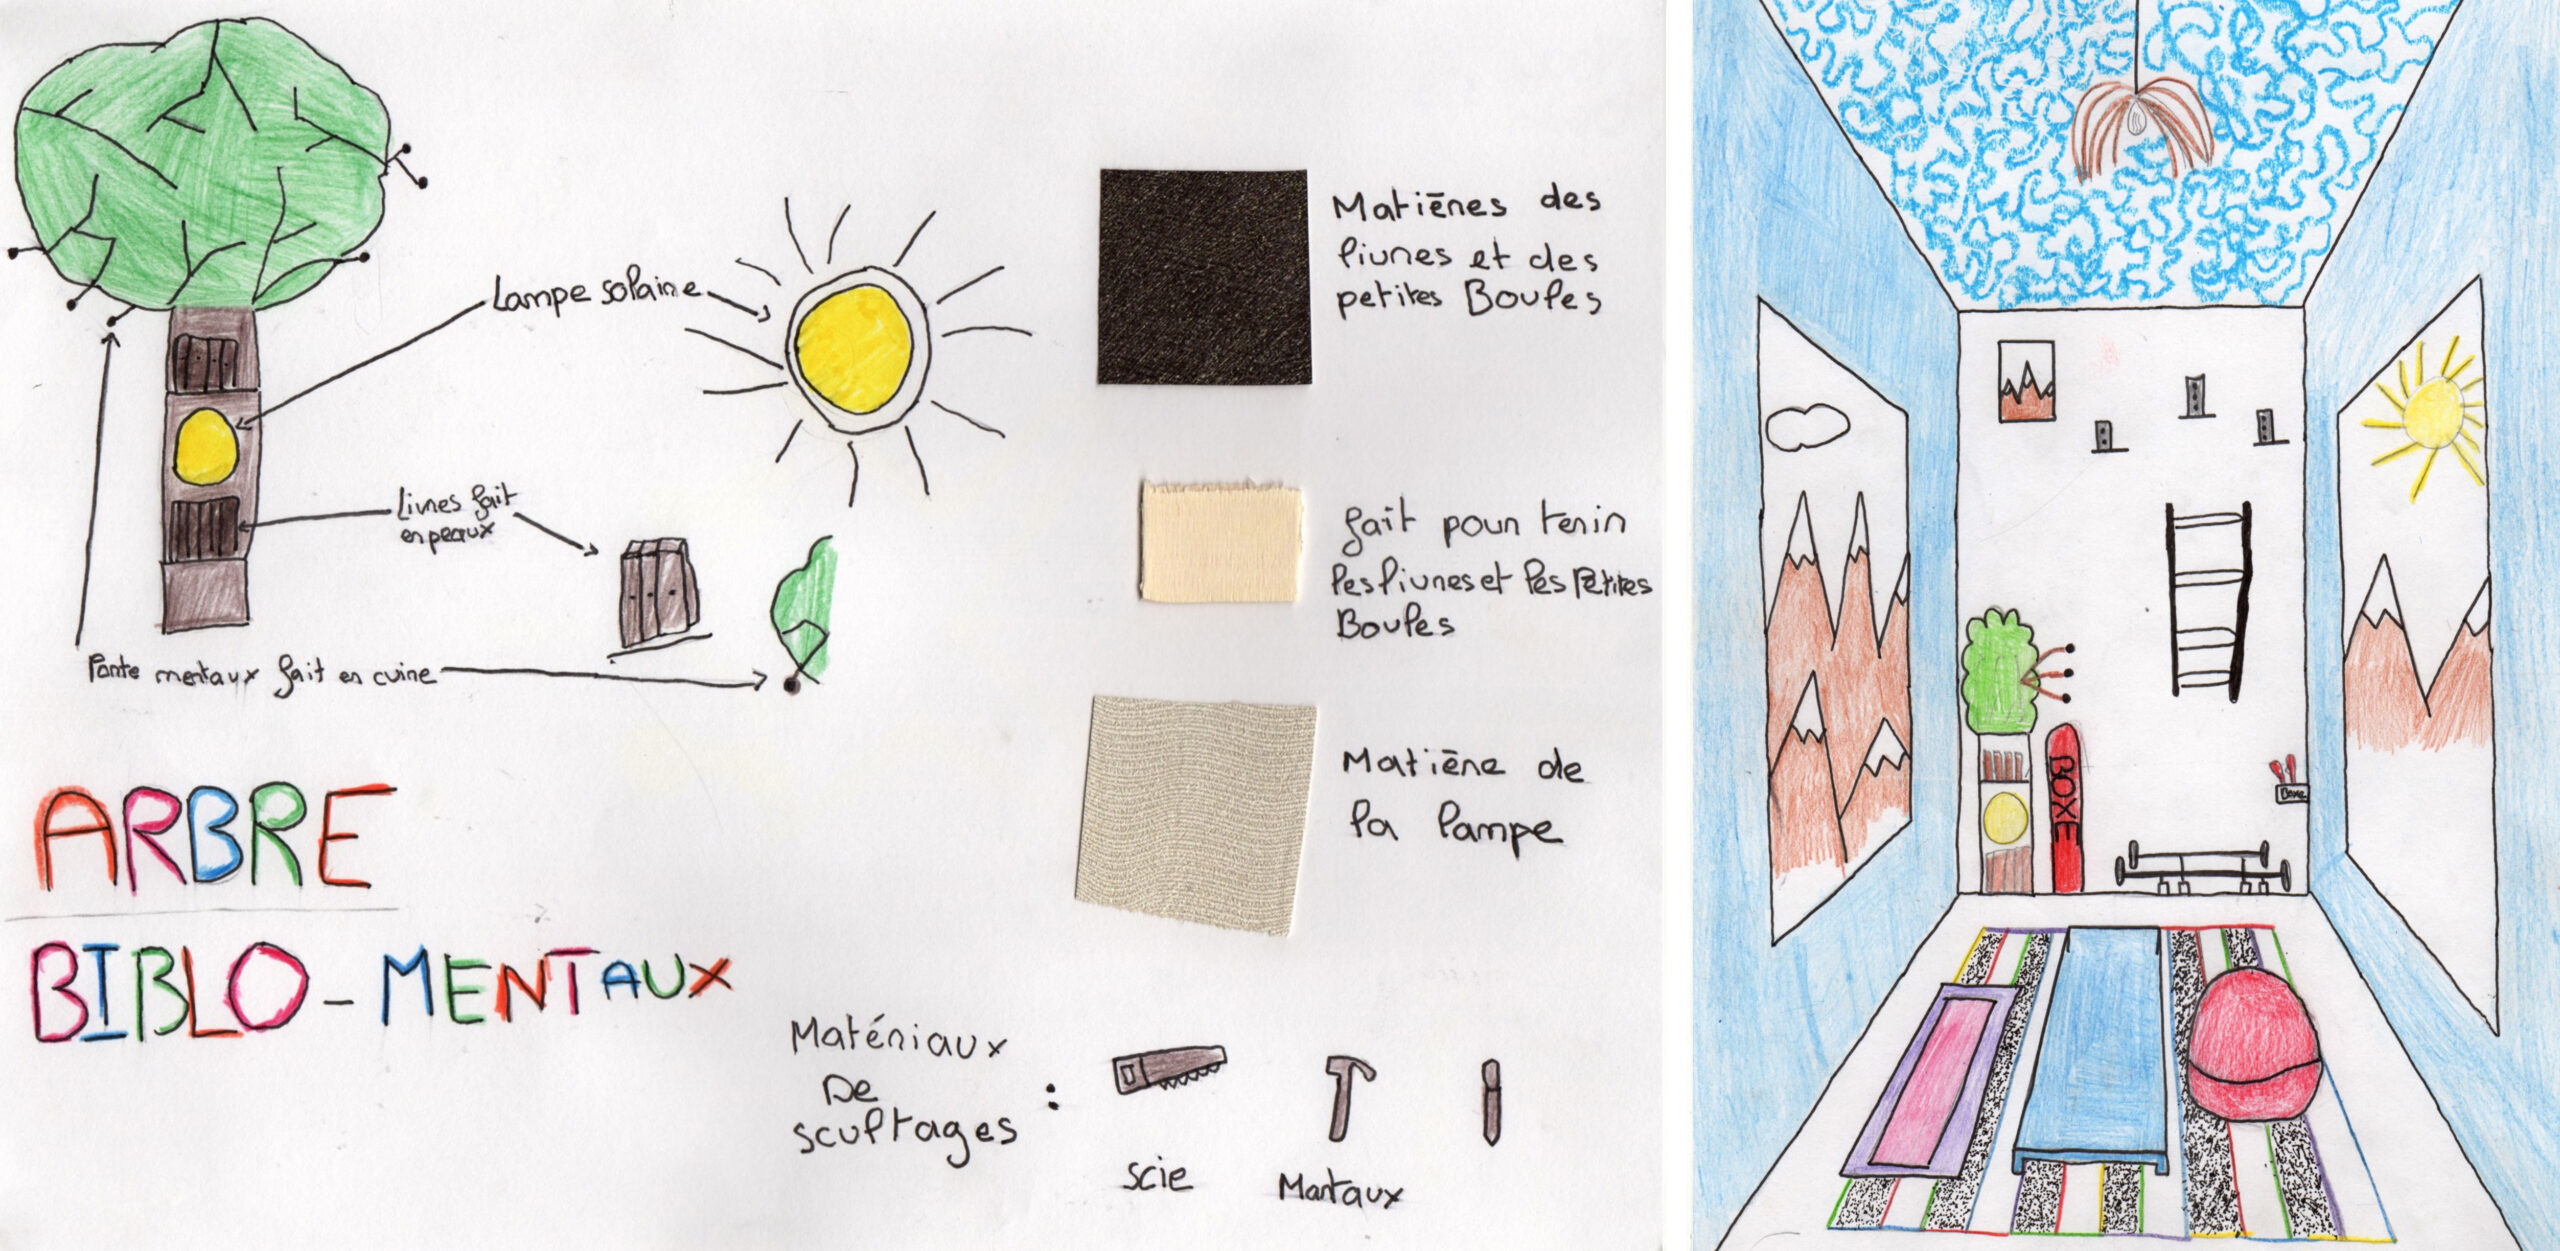 Lampe solaire
Livres fait
en peaux
Porte mentaux fait en cuire
ARBRE
BIBLO - MENTAUX
Matières des
livres et des
petites Boules
fait pour tenir
les livres et les Petites
Boules
Matière de
la lampe
Matériaux
De
scultages :
scie
Martaux
BOXE
Boxe